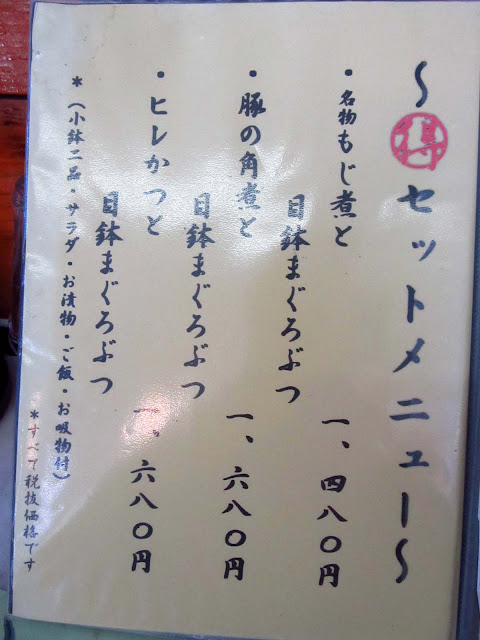 ～得セットメニュー～
・名物もじ煮と
目鉢まぐろぶつ
一、四八〇円
・豚の角煮と
目鉢まぐろぶつ
一、六八〇円
・ヒレかつと
目鉢まぐろぶつ
一、六八〇円
＊（小鉢二品・サラダ・お漬物・ご飯・お吸物付）
＊すべて税抜価格です